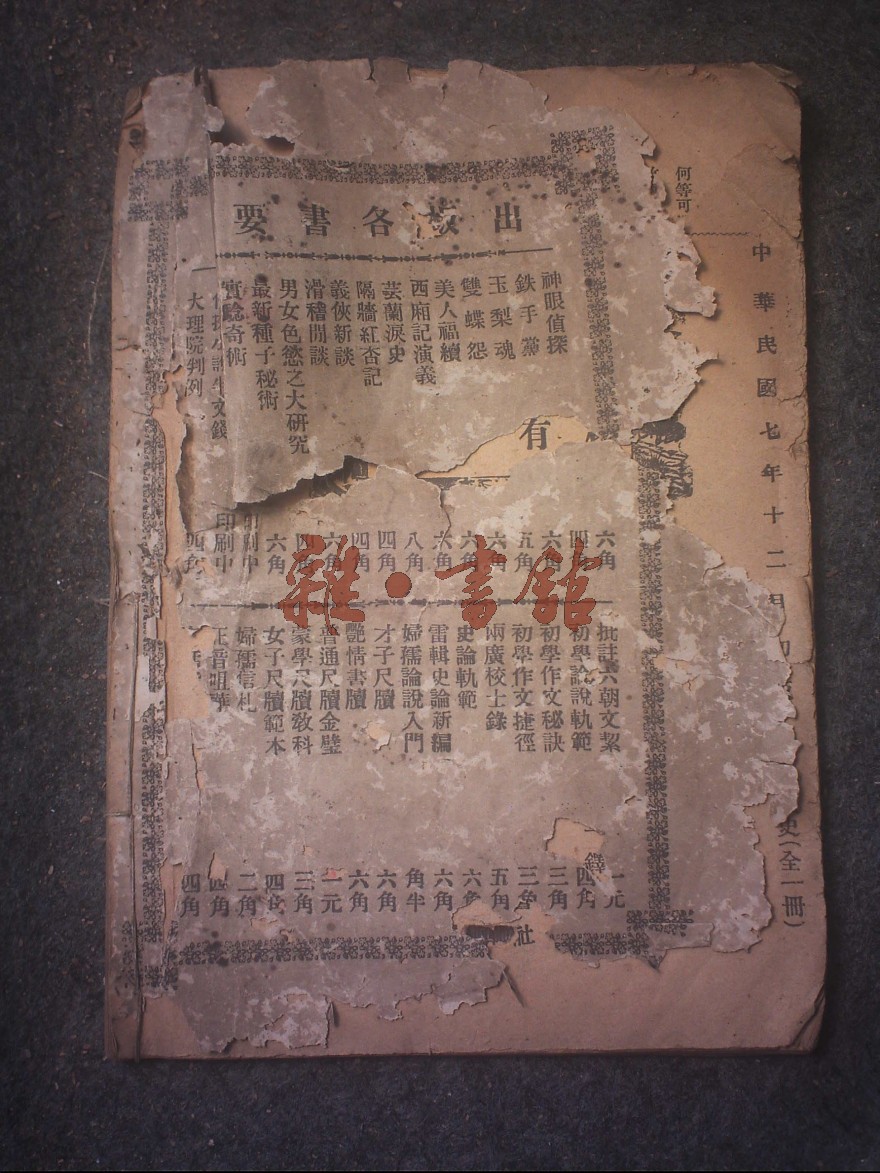 出版各書要
神眼偵探
六角
鉄手黨
四角
玉梨魂
六角
雙蝶怨
五角
美人福續
六角
西廂記演義
六角
芸蘭淚史
六角
隔牆紅杏記
八角
義俠新談
四角
滑稽閒談
四角
男女色慾之大研究
六角
最新種子秘術
四角
實驗奇術
六角
印刷中
印刷中
大理院判例
四角
批註六朝文絜
一元
初學論說軌範
四角
初學作文秘訣
三角
初學作文捷徑
三角
兩廣校士錄
五角
史論軌範
六角
雷輯史論新編
六角
婦孺論說入門
角半
才子尺牘
六角
艷情書牘
六角
普通尺牘金璧
一元
蒙學尺牘教科
三角
女子尺牘範本
四角
婦孺信札
二角
正音咀華
四角
四角
何等可
中華民國七年十二月初
史(全一冊)
有
鐸
社
雜·書館